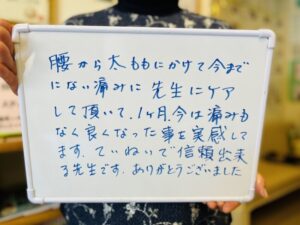 腰から太ももにかけて今まで
にない痛みに先生にケア
して頂いて、1ヶ月、今は痛みも
なく良くなった事を実感して
ます。ていねいで信頼出来
る先生です。ありがとうございました